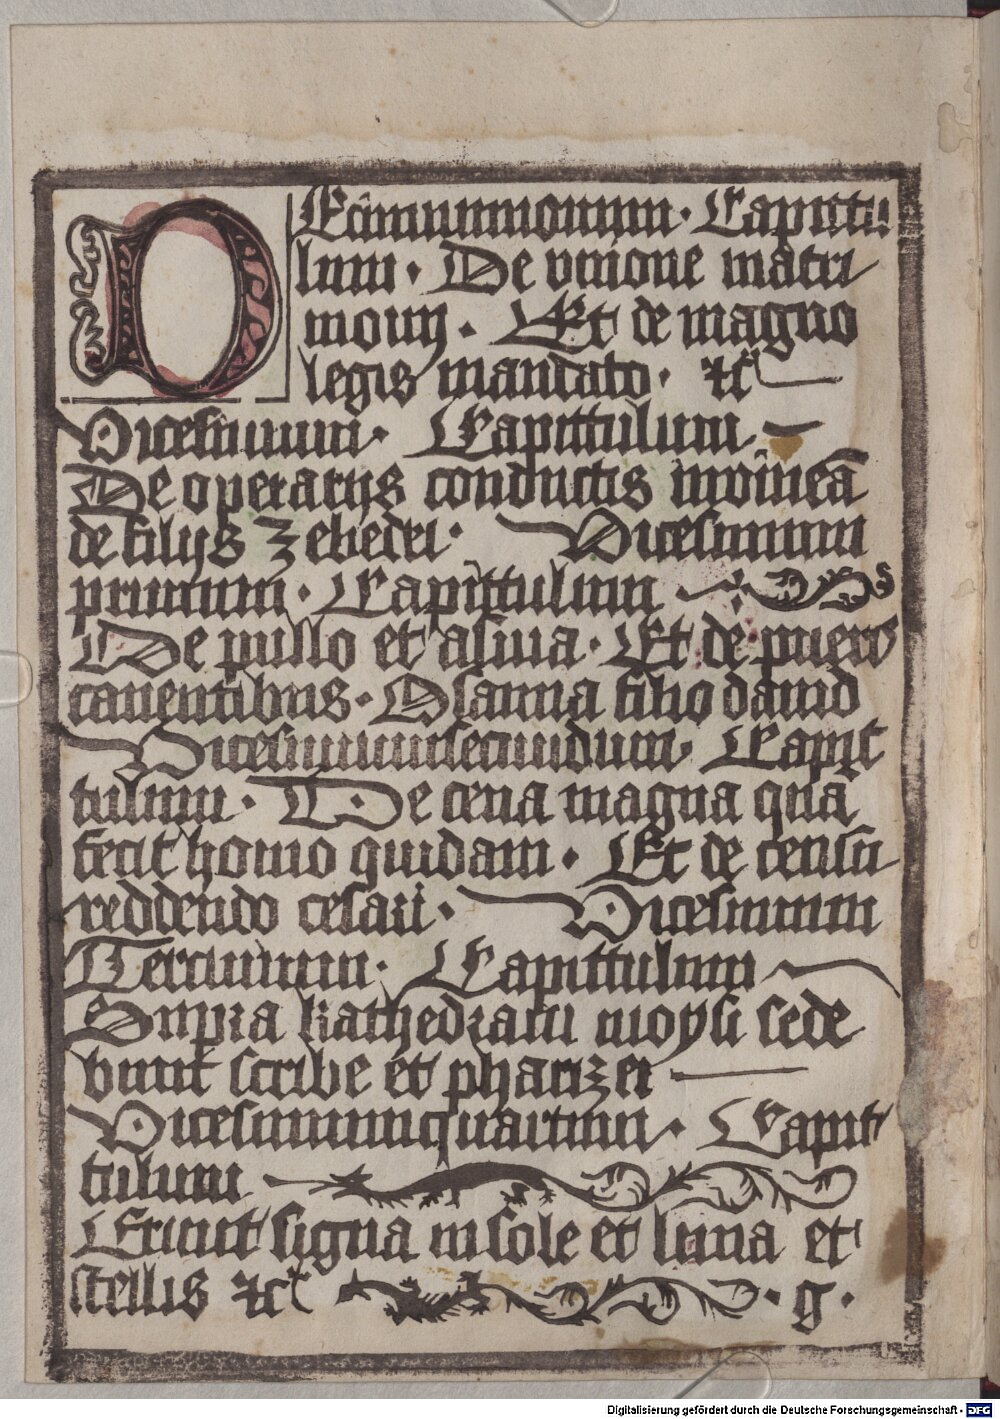 DEcimumnonum · Capittu
lum · De vnione matri
monij · Et de magno
legis mandato · ⁊cͣ
Vicesimum · Capittulum
De operarijs conductis in vineā
de filijs Zebedei · Vicesimum
primum · Capittulum
De pullo et asina · Et de pueris
canentibus · Osanna filio dauid
Vicesimumsecundum · Capit
tulum · De cena magna quā
fecit homo quidam · Et de censu
reddendo cesari · Vicesimum
Tercium · Capittulum
Supra kathedram moysi sede
bunt scribe et pharizei
Vicesimumquartum · Capit
tulum
Erunt signa in sole et luna et
stellis ⁊cͣ · g ·
Digitalisierung gefördert durch die Deutsche Forschungsgemeinschaft - DFG